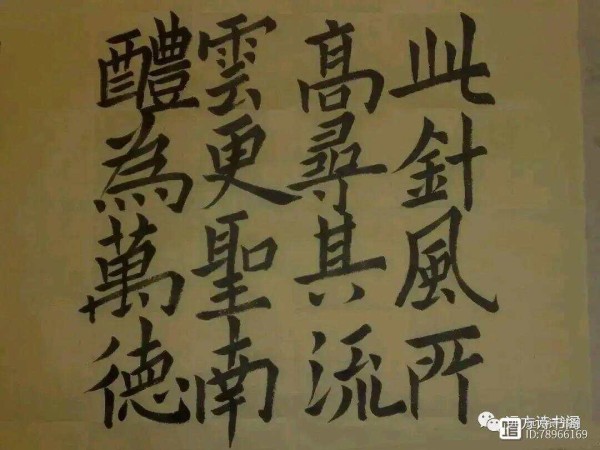 此針風所
高尋其流
雲更聖南
醴為萬德
远方诗书阁
ID:78966169